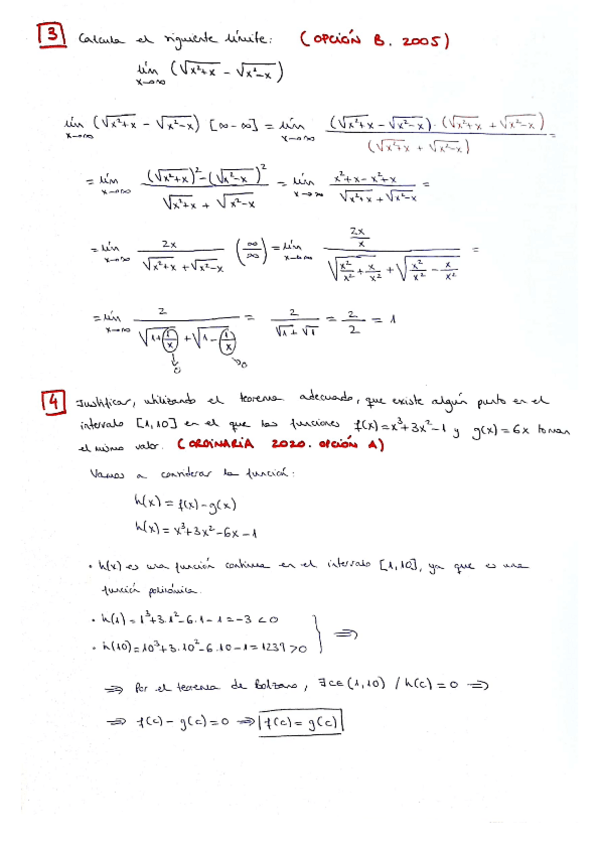 3 Calcula el siguiente límite: (OPCIÓN B. 2005)
lím x→∞ (√x²+x - √x²-x)
lím x→∞ (√x²+x - √x²-x) [∞-∞] = lím x→∞ (√x²+x - √x²-x)·(√x²+x + √x²-x) / (√x²+x + √x²-x) =
= lím x→∞ (√x²+x)² - (√x²-x)² / √x²+x + √x²-x = lím x→∞ x²+x-x²+x / √x²+x + √x²-x =
= lím x→∞ 2x / √x²+x + √x²-x (∞/∞) = lím x→∞ 2x/x / √x²/x² + x/x² + √x²/x² - x/x² =
= lím x→∞ 2 / √1+1/x + √1-1/x = 2 / √1+√1 = 2/2 = 1
0 0
4 Justificar, utilizando el teorema adecuado, que existe algún punto en el
intervalo [1,10] en el que las funciones f(x)=x³+3x²-1 y g(x)=6x toman
el mismo valor. (ORDINARIA 2020. OPCIÓN A)
Vamos a considerar la función:
h(x) = f(x)-g(x)
h(x) = x³+3x²-6x-1
• h(x) es una función continua en el intervalo [1,10], ya que es una
función polinómica.
• h(1) = 1³+3·1²-6·1-1=-3 <0
• h(10)=10³+3·10²-6·10-1=1239>0 } ⟹
⟹ Por el teorema de Bolzano, ∃c∈(1,10) / h(c)=0 ⟹
⟹ f(c)-g(c)=0 ⟹ f(c)=g(c)